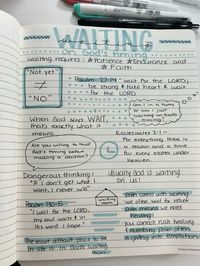 WAITING
on God's timing
waiting requires: Patience Endurance and
Faith
"Not yet"
≠
"NO"
Psalm 27:14 "Wait for the LORD;
be strong & take heart & wait
for the LORD
When God says WAIT,
that's exactly what it
means.
Am I in a hurry
or am I just
waiting on God's
timing?
Are you willing to trust
God's timing before
making a decision?
Ecclesiastes 3:1 -
For everything there is
a season and a time
for every matter under
heaven
Dangerous thinking:
"If I don't get what I
want, I never will"
usually God is waiting
on us!
waiting
room
Psalm 130:5
"I wait for the LORD,
my soul waits & in
His word I hope"
we often wait for relief
healing
you cannot rush healing
numbing pain often
is giving into temptations
The most difficult place to be
in life is in God's waiting